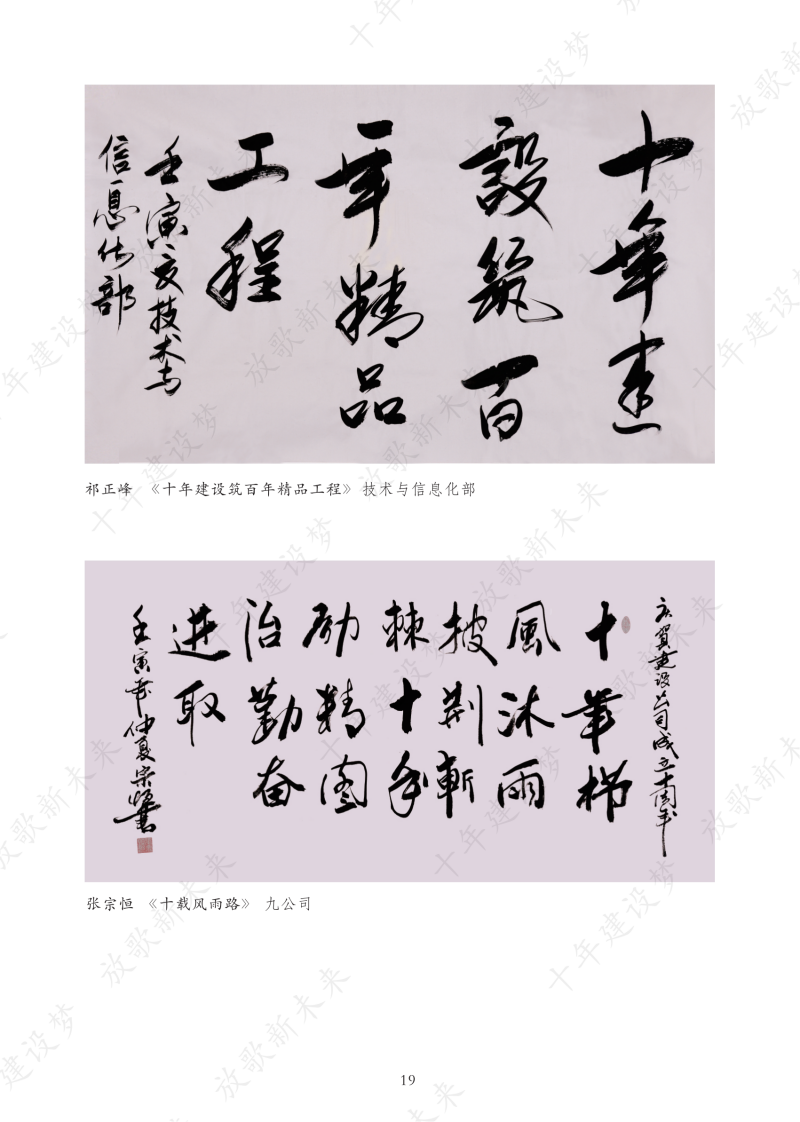 十年建
設筑百
年精品
工程
壬寅夏技术与
信息化部
祁正峰 《十年建设筑百年精品工程》 技术与信息化部
庆贺建设公司成立十周年
十年栉
風沐雨
披荆斬
棘十年
励精图
治勤奋
进取
壬寅年仲夏宗恒書
张宗恒 《十载风雨路》 九公司
19
十年建设梦 放歌新未来